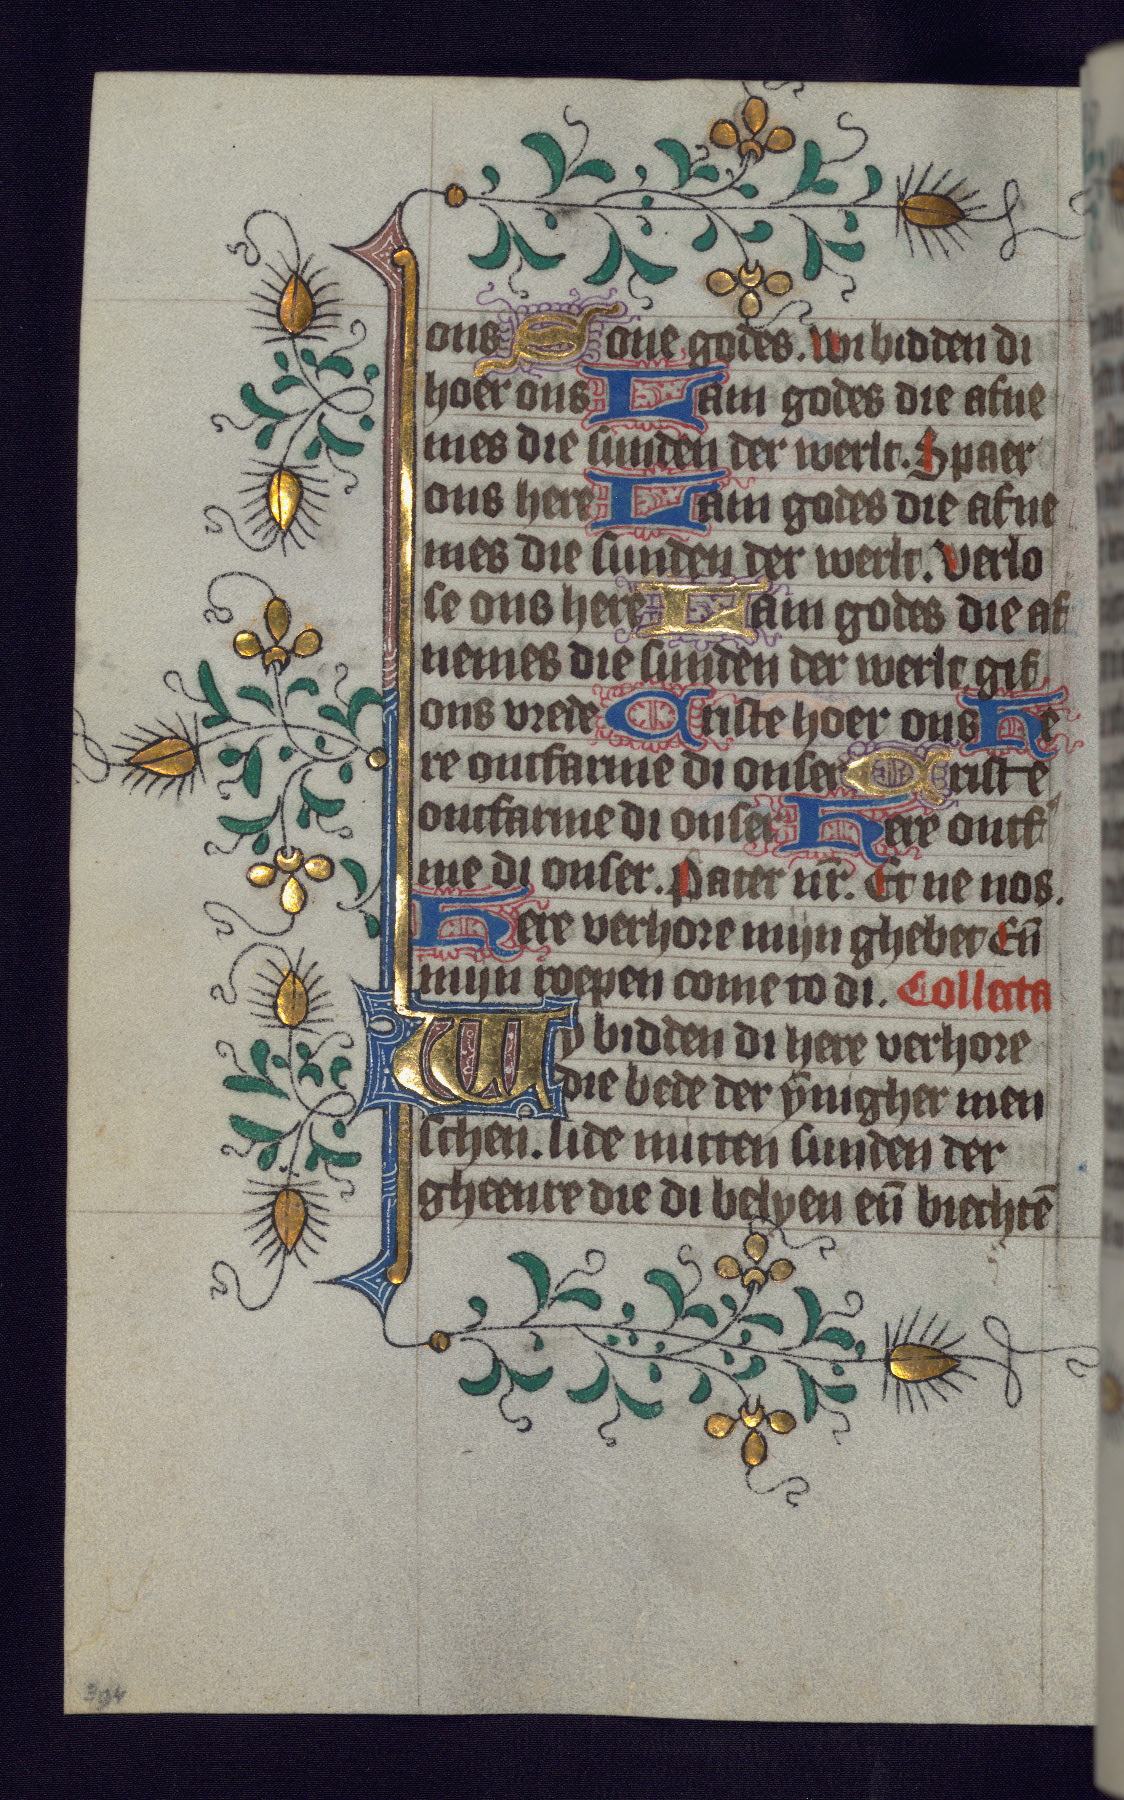 ons Sone godes. wi bidden di
hoer ons Lam godes die afne
mes die sunden der werlt. Spaer
ons here Lam godes die afne
mes die sunden der werlt. Verlo
se ons here Lam godes die af
nemes die sunden der werlt gif
ons vrede Criste hoer ons He
re ontfarme di onser Criste
ontfarme di onser Here ontf
me di onser. Pater nr̄. Et ne nos.
Here verhore mijn ghebet En̄
mijn roepen come to di. Collecta
Wy bidden di here verhore
die bede der ȳnigher men
schen. lide mitten sunden der
gheenre die di belyen en̄ biechtē
394